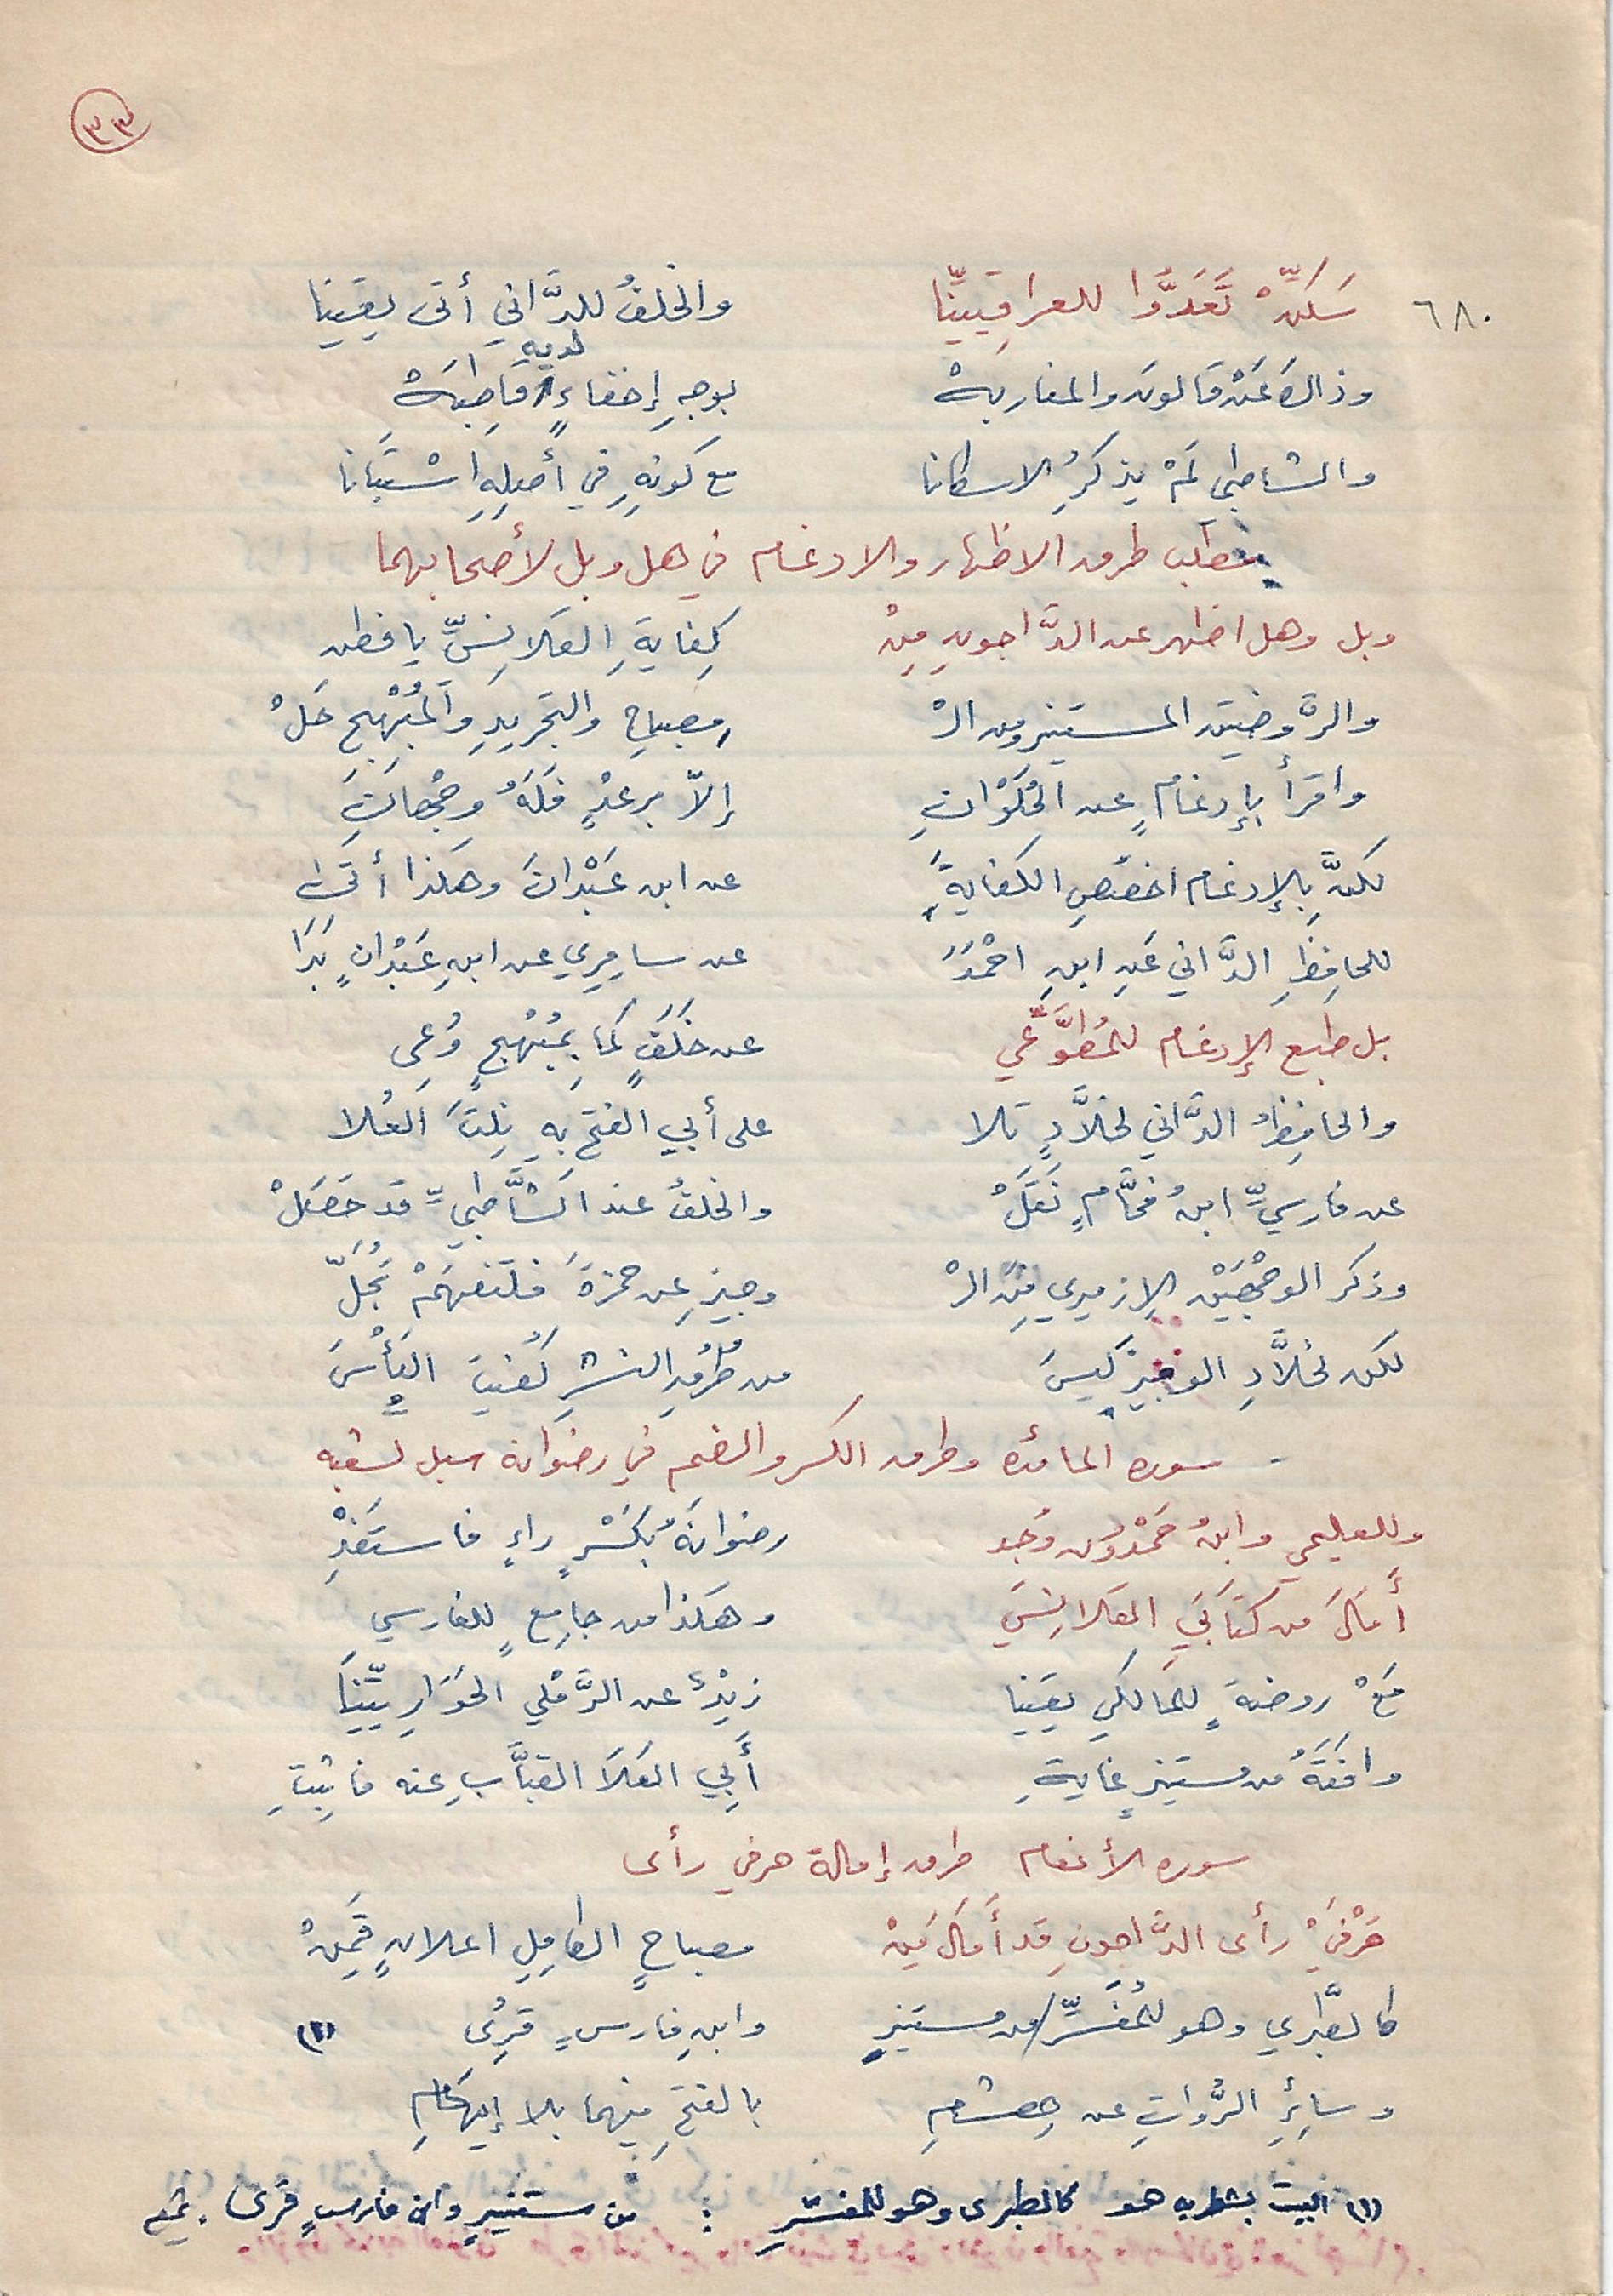 ٣٣
٦٨٠ سَكِّنْ تَعَدُّوا للعراقيينَا والخلفُ للدَّاني أتى يقينِا
لديه
وذاك عَنْ قالون والمغاربهْ بوجهِ إخفاءٍ قاطِبَهْ
والشاطبي لَمْ يذكرُ الاسكانا مع كونهِ في أصلِهِ اسْتَبَانا
مطلب طرق الاظهار والادغام في هل وبل لأصحابهما
وبل وهل اظهر عن الدَّاجونِ مِنْ كِفايةِ القلانسيِّ يا فطن
والرَّوضتين المستنير ومن الْ مصباحِ والتجريدِ والمُبْهِجِ حَلْ
واقرأ بإدغامٍ عن الحُلْوَانِ إلاّ برعدٍ فَلَهُ وجْهانِ
لكنَّ بالإدغام اخصُصِ الكفايةَ عن ابن عَبْدانَ وهكذا أتى
للحافِظِ الدَّاني عَنِ ابنِ احْمَدَ عن سامِرِي عن ابنِ عَبْدانٍ بَدَا
بل طبع الإدغام للمُطَوَّعِي عن خَلَفٍ كما بِمُبْهِجٍ وُعِى
والحافِظُ الدَّاني لخلاَّدٍ تلا على أبي الفتح بهِ نِلتَ العُلا
عن فارسيٍّ ابنُ فحَّامٍ نَقَلْ والخلفُ عند الشَّاطبيِّ قد حَصَلْ
وذكر الوجْهَيْن الإزميري مِنَ الْ وجيزِ عن حمزةَ فلتفهَمْ تُجَلّ
لكن لخلاَّدِ الوجيز ليسَ من طُرُقِ النشرِ كُفيتَ البَأْسَ
سورة المائدة وطرق الكسر والضم في رضوانه سبل لشعبه
وللعليمي وابنُ حَمْدُون وُجد رضوانَهُ بكَسْرِ راءٍ فاستَفِدْ
أَمَالَ من كتابَيِ القلانِسي وهكذا من جامِعٍ للفارسي
مَعْ روضةٍ للمالكي يقينا زيْدٌ عن الرَّمْلي الحَوَارِيِّينَا
وافقَهُ من مستنيرٍ غايةِ أَبِي العَلاَ القبَّابِ عنه فاثبِتِ
سورة الأنعام طرق إمالة حرفي رأى
حَرْفَيْ رأى الدَّاجونِ قد أَمَالَ مِنْ مصباحِ الكامِلِ اعلانٍ قَمِنْ
كالطَّبري وهو للمُفَسِّرِ/من مستنيرٍ وابنِ فارسٍ قُرِى (١)
وسائِرُ الرُّواتِ عن هِشامِ بالفتحِ فيهما بلا إيهامِ
(١) البيت بشطريه هو كالطبرى وهو للمفسّرِ : من مستنيرٍ وابن فارسٍ قُرِى.